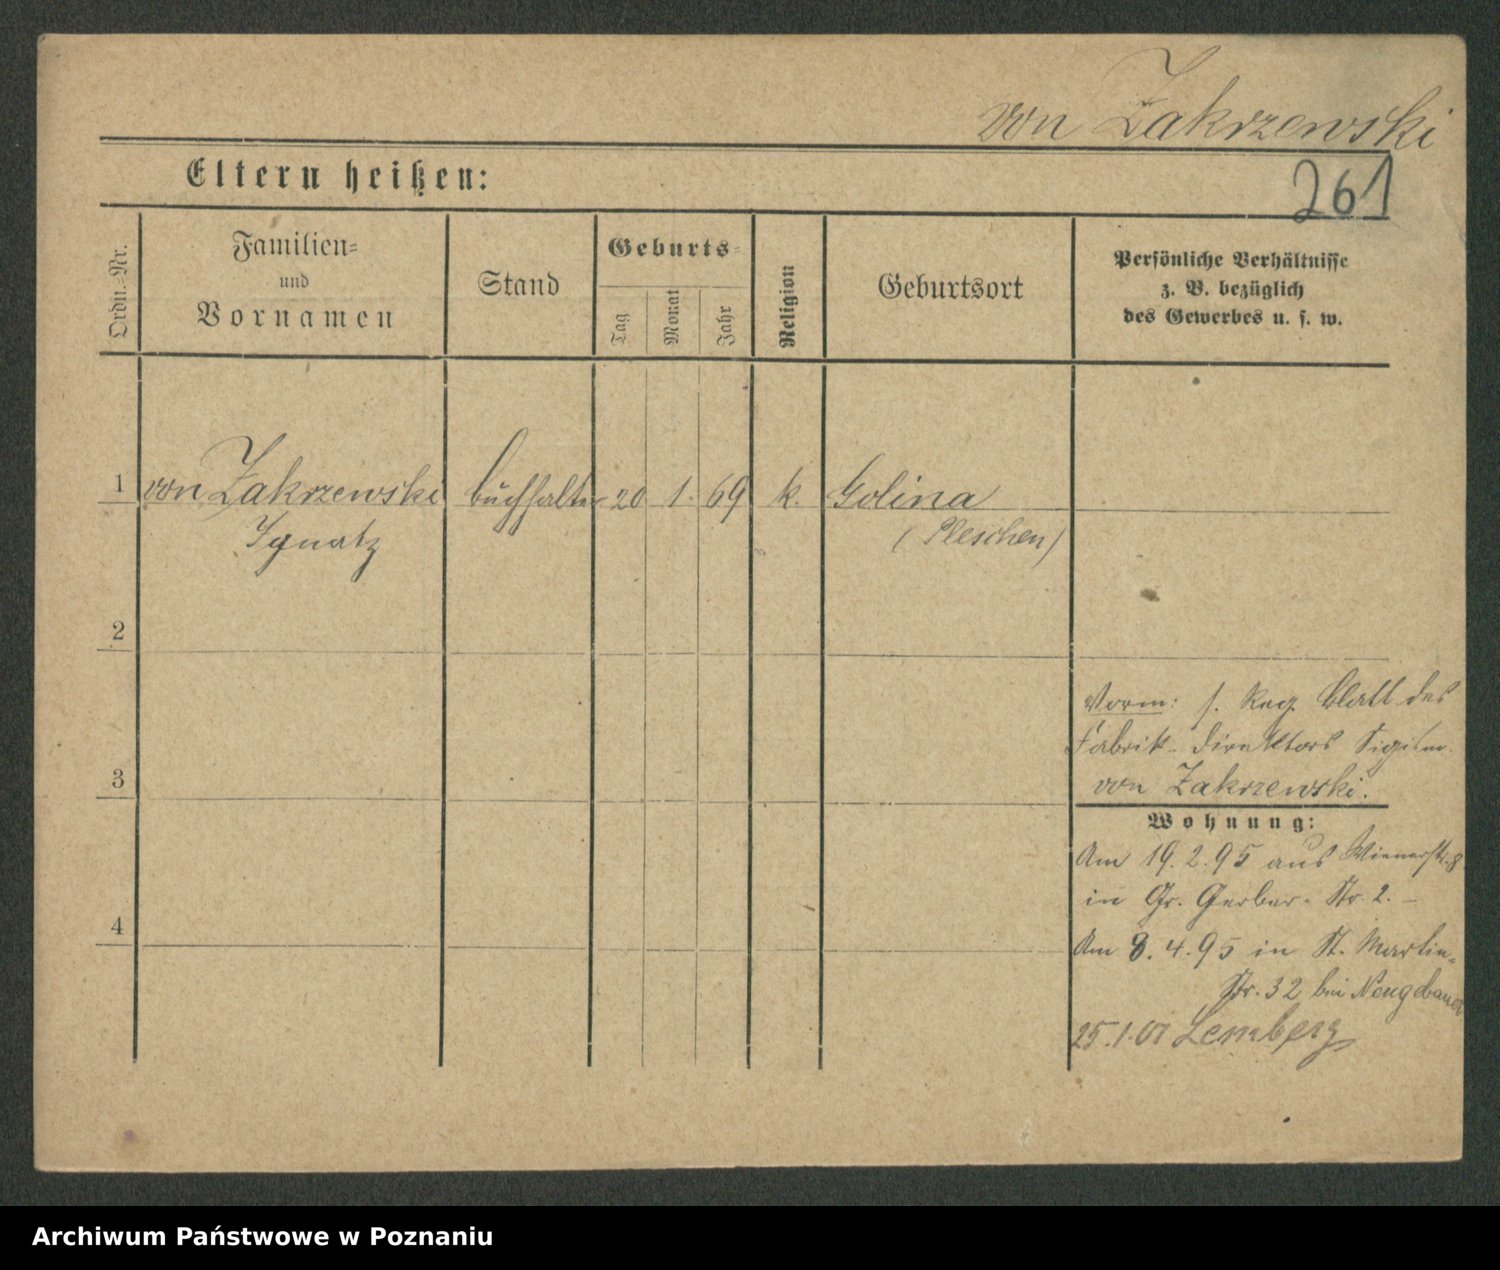 von Zakrzewski
Eltern heißen:
261
Ordn.-Nr.
Familien-
und
Vornamen
Stand
Geburts-
Tag
Monat
Jahr
Religion
Geburtsort
Persönliche Verhältnisse
z. B. bezüglich
des Gewerbes u. s. w.
1 von Zakrzewski Buchhalter 20 1. 69 k. Golina
Ignatz (Pleschen)
2
Vorm: s. Reg. Blatt des
Fabrik-Direktors Sigism.
von Zakrzewski.
3
Wohnung:
Am 19.2.95 aus Wienerstr. 8
in Gr. Gerber-Str. 2. –
4
Am 8.4.95 in St. Martin-
Str. 32 bei Neugebauer
25.1.01 Lemberg
Archiwum Państwowe w Poznaniu